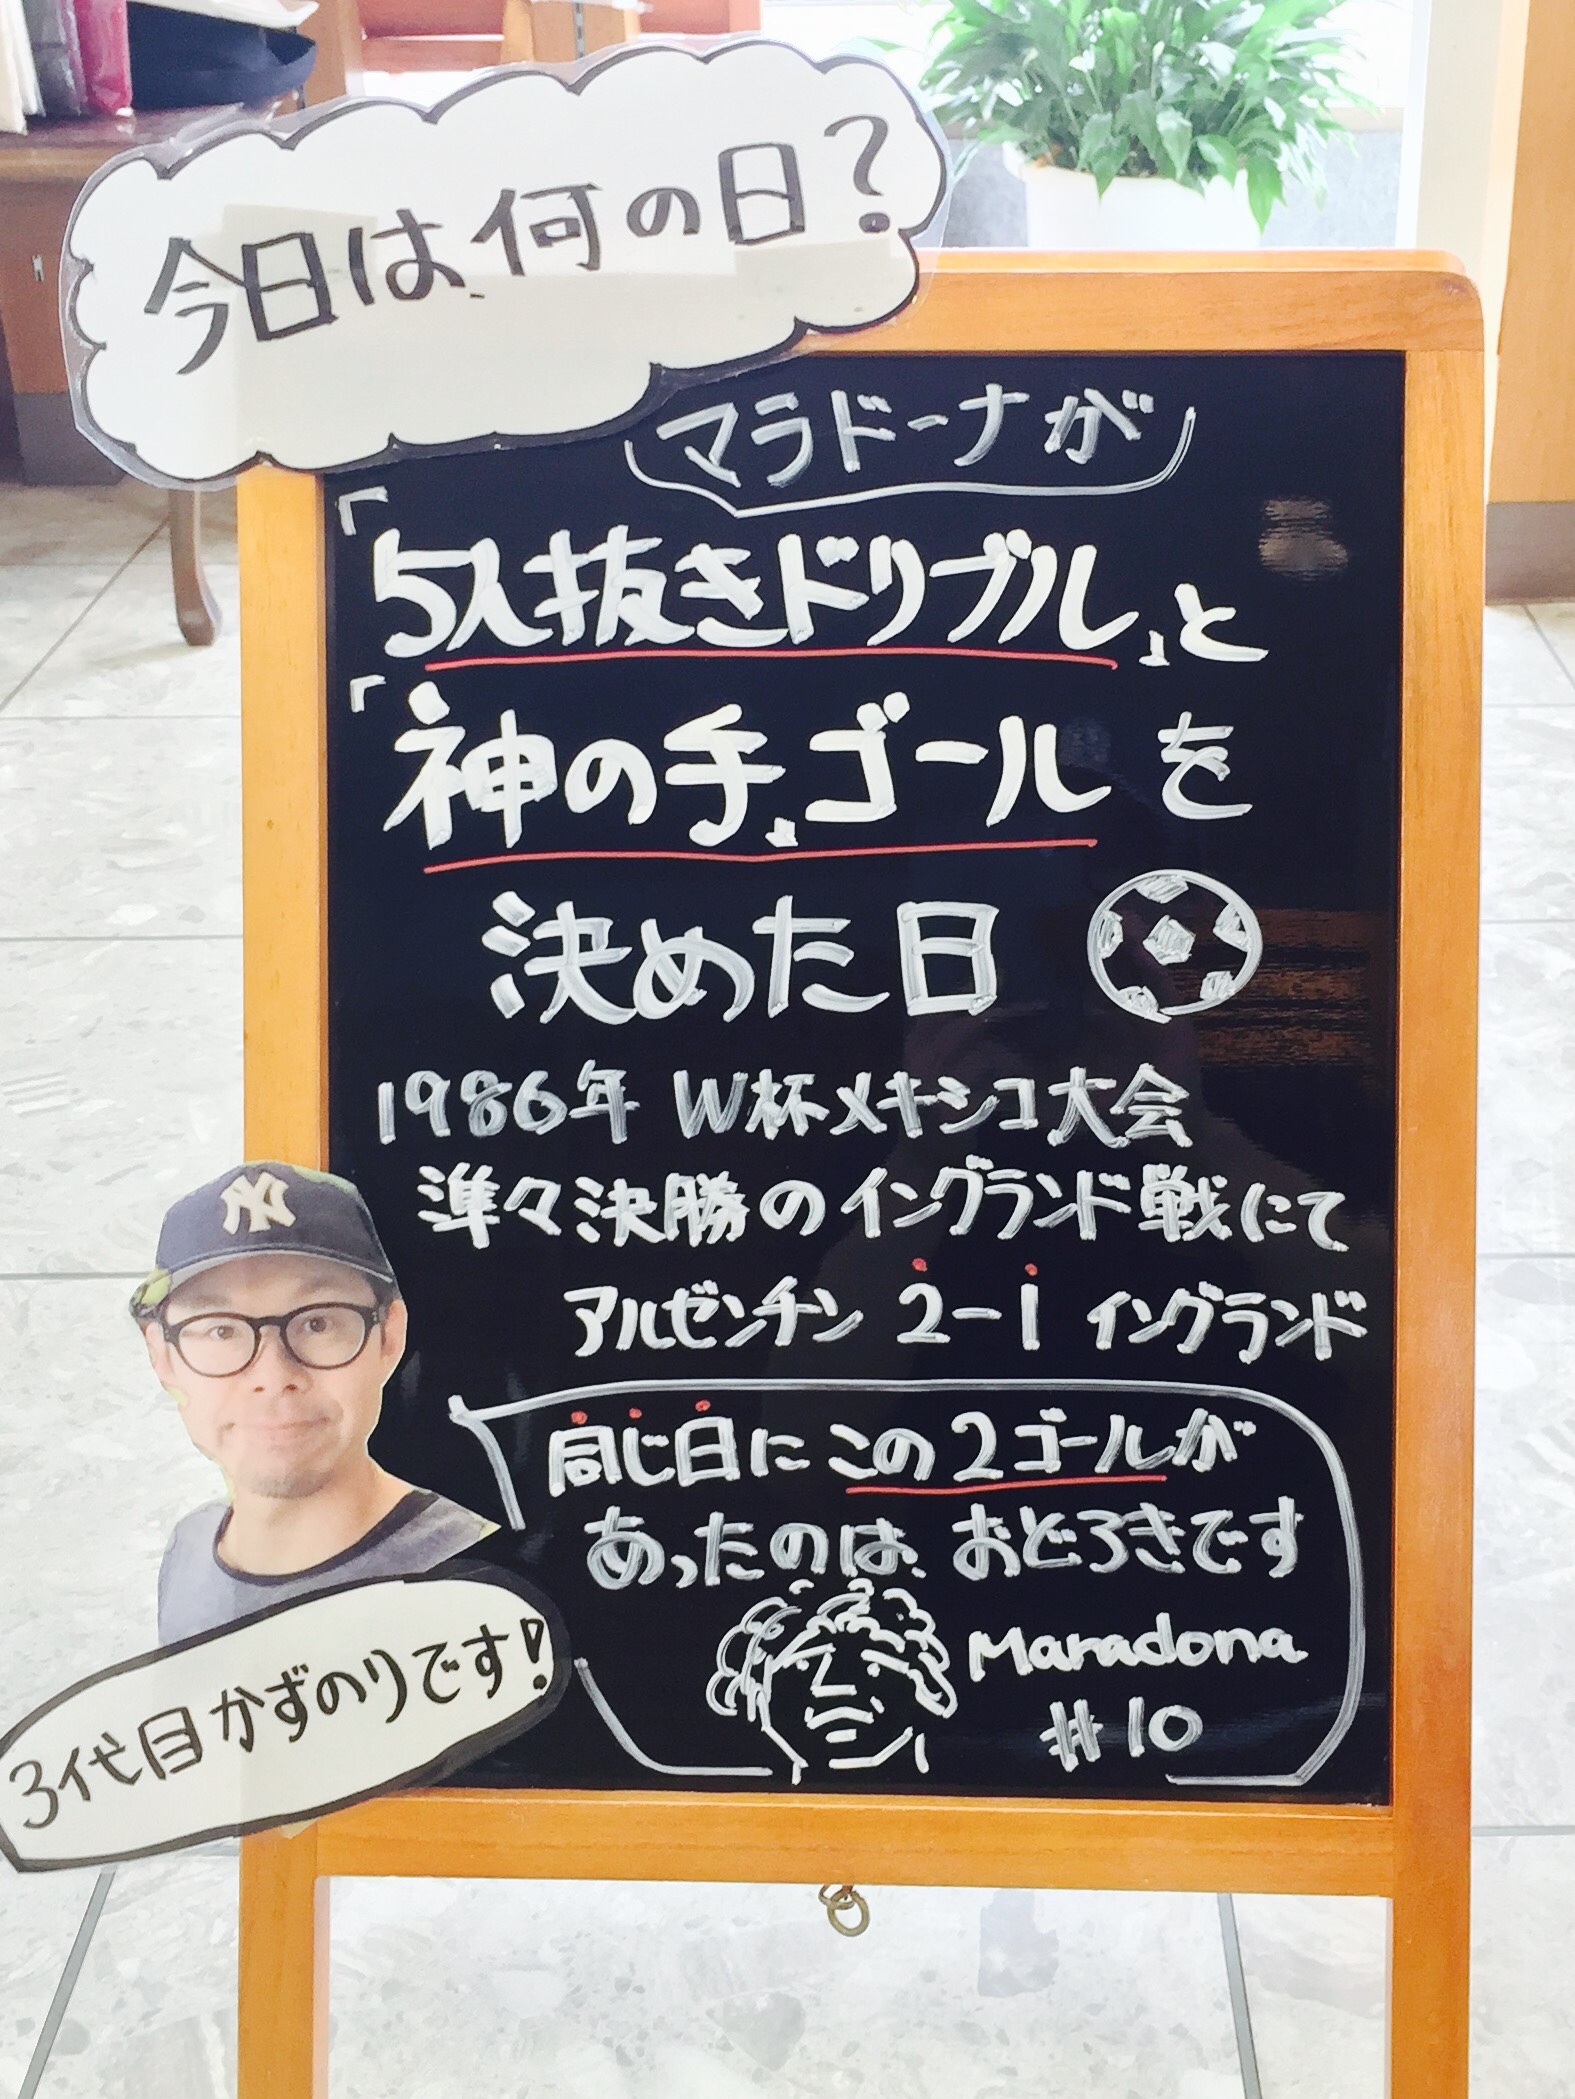 今日は何の日?
マラドーナが
「5人抜きドリブル」と
「神の手」ゴールを
決めた日
1986年 W杯メキシコ大会
準々決勝のイングランド戦にて
アルゼンチン 2-1 イングランド
同じ日にこの2ゴールが
あったのは、おどろきです
Maradona
#10
NY
3代目かずのりです!